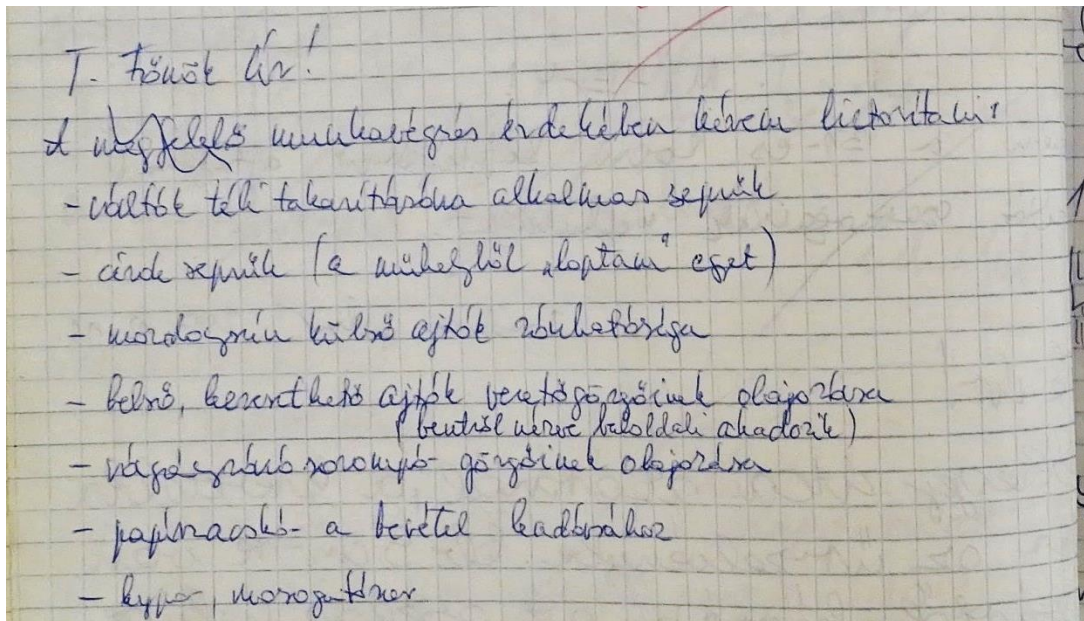 T. Főnök Úr!
A megfelelő munkavégzés érdekében kérem biztosítani:
- váltók téli takarítására alkalmas seprűk
- cirok seprűk (a műhelyből „loptam" egyet)
- mozdonyszín külső ajtók zárhatósága
- belső, keresztheltő ajtók vezetőgörgőinek olajozása
(bentről nézve baloldali akadozik)
- vágányzáró sorompó görgőinek olajozása
- papírzacskó - a bevétel leadásához
- hypo, mosogatószer